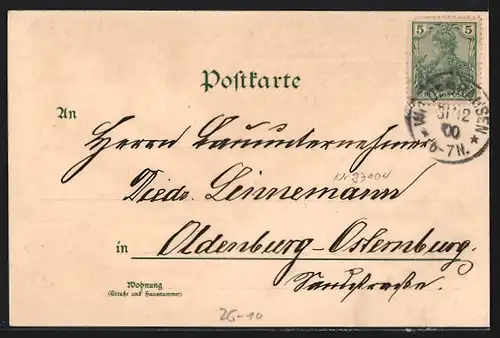 5 5
Postkarte
WILDESHAUSEN
31 12
00
6-7N.
An
Herrn Bauunternehmer
Diedr. Linnemann
in Oldenburg-Osternburg.
Sandstrasse.
Wohnung
(Straße und Hausnummer)
26-10